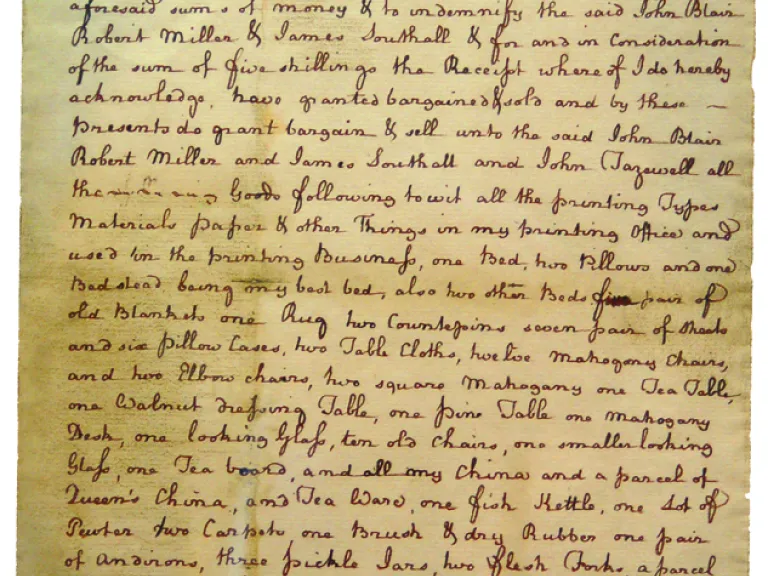 aforesaid sums of money & to indemnify the said John Blair
Robert Miller & James Southall & for and in Consideration
of the sum of five shillings the Receipt whereof I do hereby
acknowledge, have granted bargained & sold and by these —
presents do grant bargain & sell unto the said John Blair
Robert Miller and James Southall and John Tazewell all
the Goods following to wit all the printing Types
Materials paper & other Things in my printing Office and
used in the printing Business, one Bed, two Pillows and one
Bedstead, being my best bed, also two other Beds pair of
old Blankets one Rug two Counterpins seven pair of sheets
and six pillow Cases, two Table Cloths, twelve mahogony Chairs,
and two Elbow chairs, two square Mahogany one Tea Table,
one Walnut dressing Table, one pine Table one mahogany
Desk, one looking Glass, ten old chairs, one smaller looking
Glass, one Tea board, and all my China and a parcel of
Queen's China, and Tea Ware, one fish Kettle, one Lot of
Pewter two Carpets, one Brush & dry Rubber one pair
of andirons, three pickle Jars, two flesh Forks a parcel